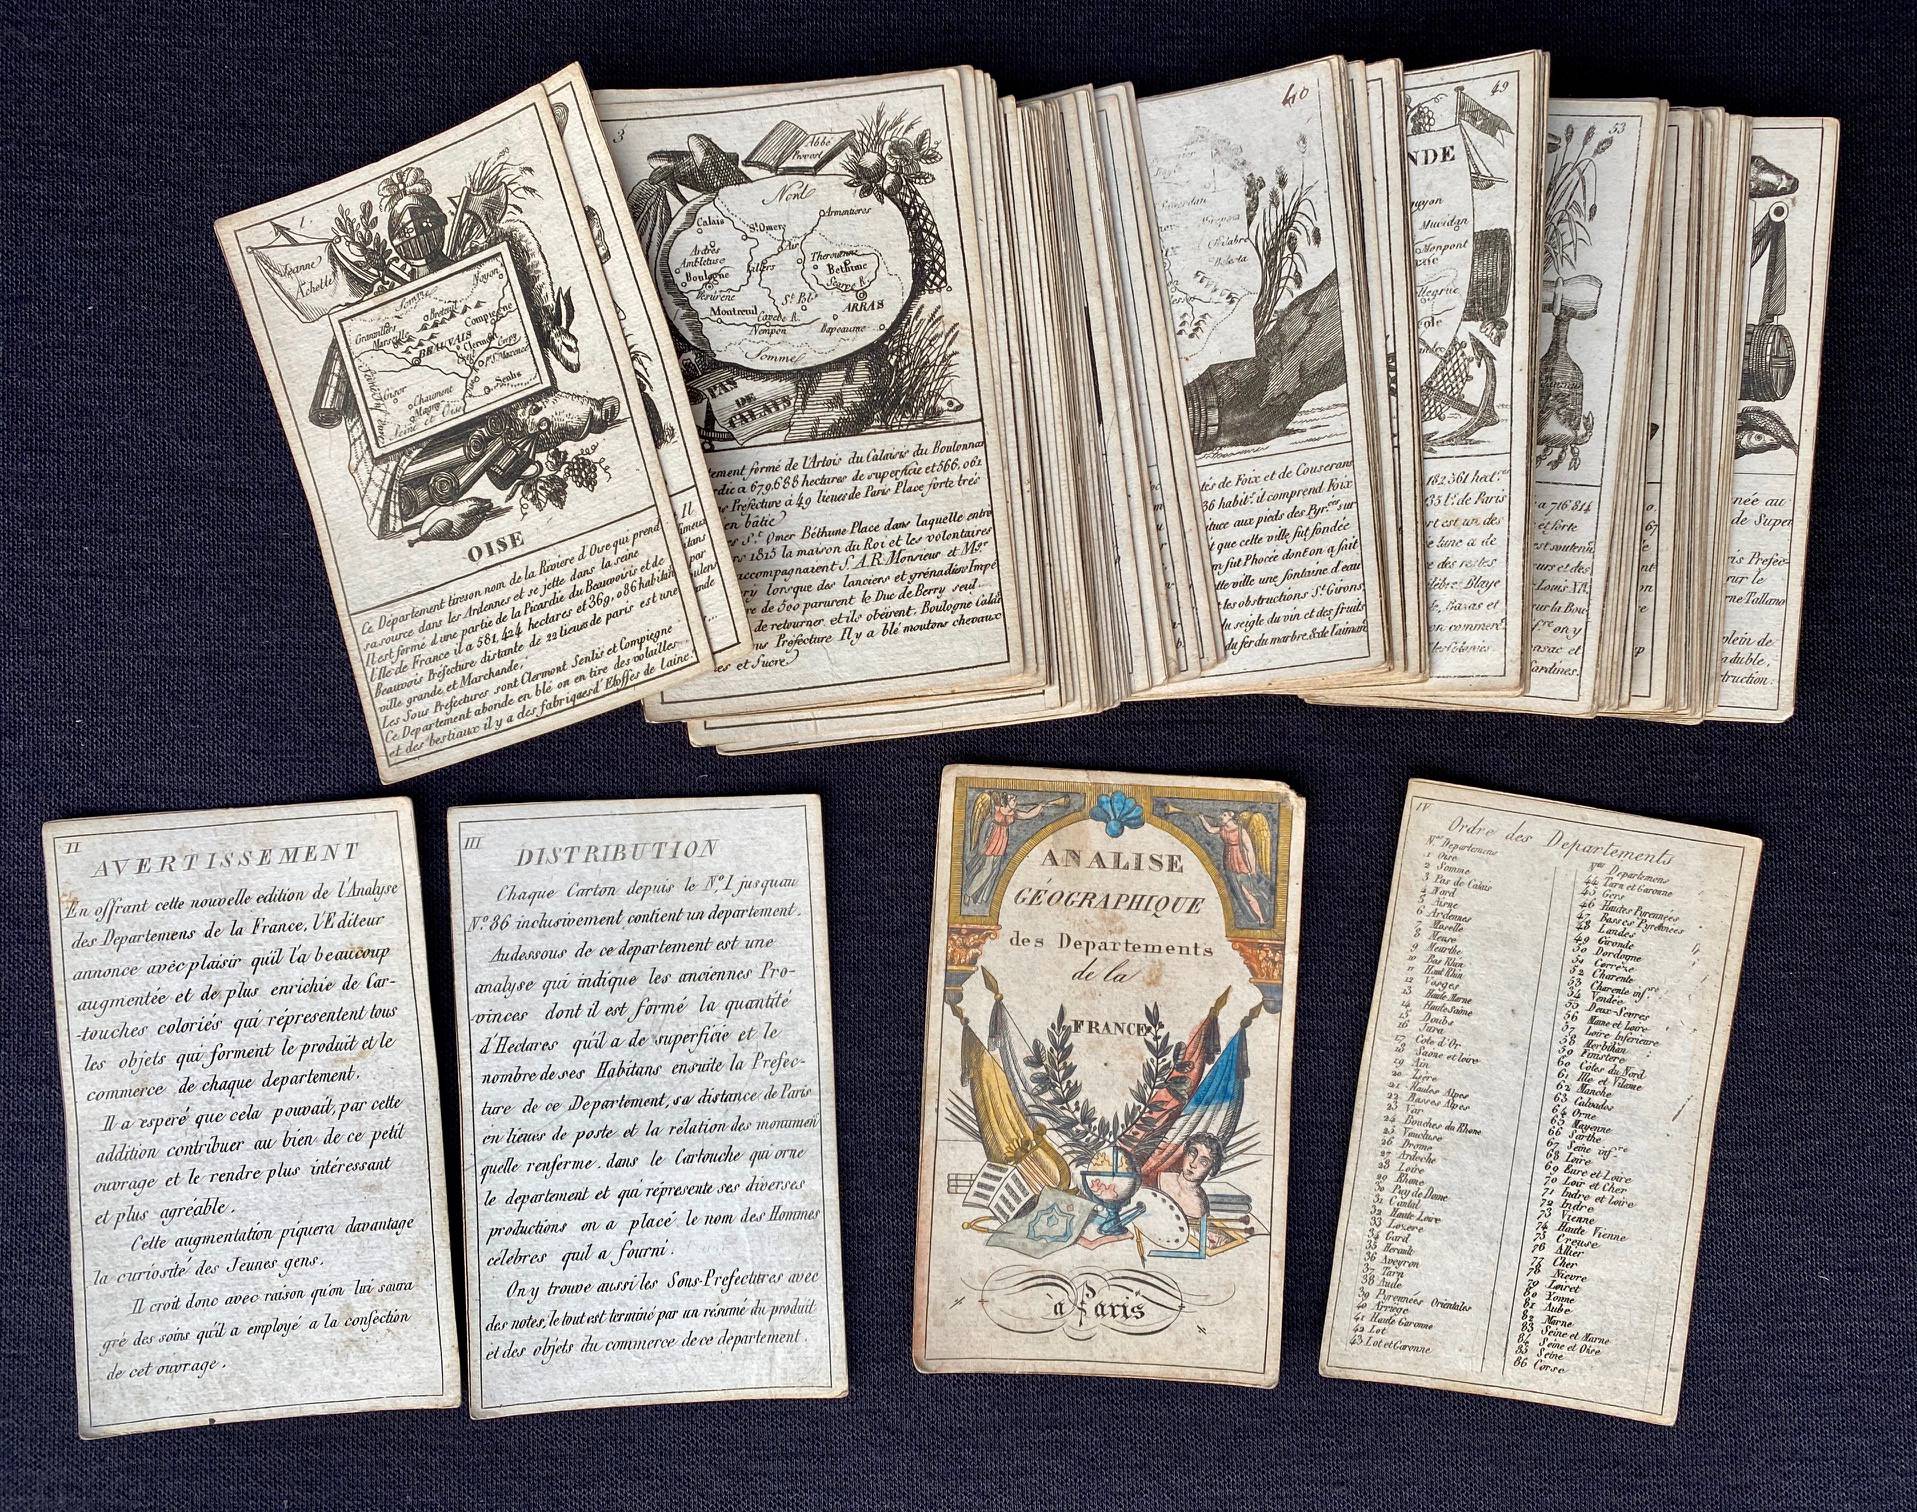 1
Jeanne
Achette
Noyon
Breteuil
Compiegne
Marseille
BEAUVAIS
Clermont
Crepy
Senlis
Gisor
Chaumont
Magny
Oise
Seine et
OISE
Ce Département tire son nom de la Riviere d'Oise qui prend
sa source dans les Ardennes et se jette dans la seine
Il est formé d'une partie de la Picardie du Beauvoisis et de
l'Ile de France il a 581,424 hectares et 369,086 habitan
Beauvois Préfecture distante de 22 lieues de paris est une
ville grande et Marchande,
Les Sous Prefectures sont Clermont Senlis et Compiegne
Ce Departement abonde en blé on en tire des volailles
et des bestiaux il y a des fabriques d'Etoffes de laine.
3
Abbé
Prevost
Nord
Calais
St Omer
Armentieres
Ardres
Ambletuse
Air
Therouenne
Boulogne
Lillers
Bethune
Scarpe R.
St Pol
ARRAS
Montreuil
Canche R.
Hempon
Bapeaume
Somme
PAS
DE
CALAIS
ement formé de l'Artois du Calaisis du Boulonnar
rdie a 679,688 hectares de superficie et 566,061
Prefecture à 49 lieues de Paris Place forte trés
en bâtie
es St Omer Béthune Place dans laquelle entre
rs 1815 la maison du Roi et les volontaires
accompagnaient S.A.R. Monsieur et Mgr
ry lorsque des lanciers et grénadiers Impé
re de 500 parurent le Duc de Berry seul
de retourner et ils obéirent, Boulogne Calai
us Préfecture Il y a blé moutons chevaux
es et Sucre
40
tés de Foix et de Couserans
36 habit. il comprend Foix
tuee aux pieds des Pyr.ées sur
t que cette ville fut fondée
n sut Phocée dont on a fait
tte ville une fontaine d'eau
t les obstructions St Girons,
du seigle du vin et des fruits
du fer du marbre & de l'aiman
49
NDE
Mucidan
Monpont
182361 hect.
35 l. de Paris
rt est un des
lune a de
e des restes
lébre Blaye
Bazas et
on commerce
53
a 716814
et forte
est soutenu
urs et des
Louis XIV
sur la Bou
ony
sac et
ardines.
née au
de Super
is Préfec
sur le
rne Tallano
plein de
duble,
truction.
II
AVERTISSEMENT
En offrant cette nouvelle edition de l'Analyse
des Departemens de la France, l'Editeur
annonce avéc plaisir qu'il l'a beaucoup
augmentée et de plus enrichie de Car-
-touches coloriés qui répresentent tous
les objets qui forment le produit et le
commerce de chaque departement.
Il a esperé que cela pouvait, par cette
addition contribuer au bien de ce petit
ouvrage et le rendre plus intéressant
et plus agréable.
Cette augmentation piquera davantage
la curiosité des Jeunes gens.
Il croit donc avec raison qu'on lui saura
gré des soins qu'il a employé a la confection
de cet ouvrage.
III
DISTRIBUTION
Chaque Carton depuis le N.º 1 jusquau
N.º 86 inclusivement contient un departement.
Audessous de ce departement est une
analyse qui indique les anciennes Pro-
vinces dont il est formé la quantité
d'Hectares qu'il a de superficie et le
nombre de ses Habitans ensuite la Préfec-
ture de ce Departement, sa distance de Paris
en lieues de poste et la relation des monumen
quelle renferme. dans le Cartouche qui orne
le departement et qui répresente ses diverses
productions on a placé le nom des Hommes
célebres quil a fourni.
On y trouve aussi les Sous-Prefectures avec
des notes, le tout est terminé par un résumé du produit
et des objets du commerce de ce departement.
ANALISE
GÉOGRAPHIQUE
des Departements
de la
FRANCE
à Paris
IV
Ordre des Departements
Nos Departemens
1 Oise
2 Somme
3 Pas de Calais
4 Nord
5 Aisne
6 Ardennes
7 Moselle
8 Meuse
9 Meurthe
10 Bas Rhin
11 Haut Rhin
12 Vosges
13 Haute Marne
14 Haute Saône
15 Doubs
16 Jura
17 Cote d'Or
18 Saone et loire
19 Ain
20 Isére
21 Hautes Alpes
22 Basses Alpes
23 Var
24 Bouches du Rhone
25 Vaucluse
26 Drome
27 Ardeche
28 Loire
29 Rhone
30 Puy de Dome
31 Cantal
32 Haute Loire
33 Lozere
34 Gard
35 Herault
36 Aveyron
37 Tarn
38 Aude
39 Pyrennées Orientales
40 Arriege
41 Haute Garonne
42 Lot
43 Lot et Garonne
Nos Departemens
44 Tarn et Garonne
45 Gers
46 Hautes Pyrennées
47 Basses Pyrennées
48 Landes
49 Gironde
50 Dordogne
51 Corrèze
52 Charente
53 Charente infre
54 Vendée
55 Deux-Sevres
56 Maine et Loire
57 Loire Inferieure
58 Morbihan
59 Finistere
60 Côtes du Nord
61 Ille et Vilaine
62 Manche
63 Calvados
64 Orne
65 Mayenne
66 Sarthe
67 Seine infre
68 Loire
69 Eure et Loire
70 Loir et Cher
71 Indre et loire
72 Indre
73 Vienne
74 Haute Vienne
75 Creuse
76 Allier
77 Cher
78 Nievre
79 Loiret
80 Yonne
81 Aube
82 Marne
83 Seine et Marne
84 Seine et Oise
85 Seine
86 Corse